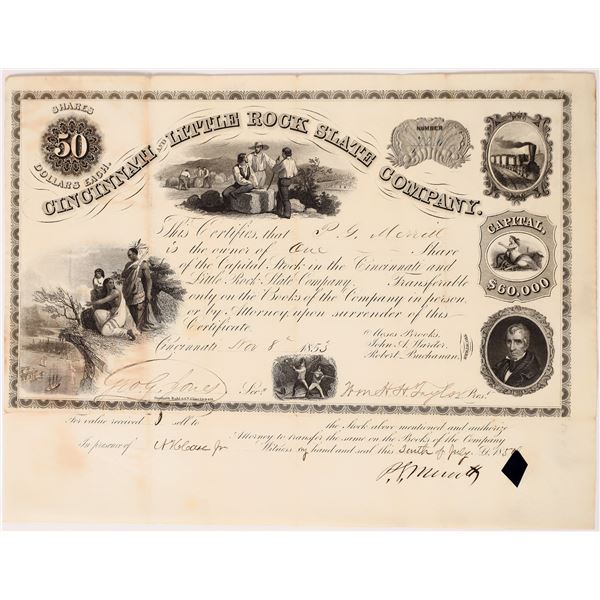 SHARES
50
DOLLARS EACH.
CINCINNATI AND LITTLE ROCK SLATE COMPANY.
NUMBER
CAPITAL,
$60,000
This Certifies, that P. G. Merrill
is the owner of One Share
of the Capital Stock in the Cincinnati and
Little Rock Slate Company. Transferable
only on the Books of the Company in person
or by Attorney upon surrender of this
Certificate.
Cincinnati Nov 8th 1853
Moses Brooks,
John A. Warder,
Robert Buchanan,
Geo G. Jones Sec.
Wm H H Taylor Pres.
For value received I sell to
the Stock above mentioned and authorize
Attorney to transfer the same on the Books of the Company
In presence of
Witness my hand and seal this Tenth of July